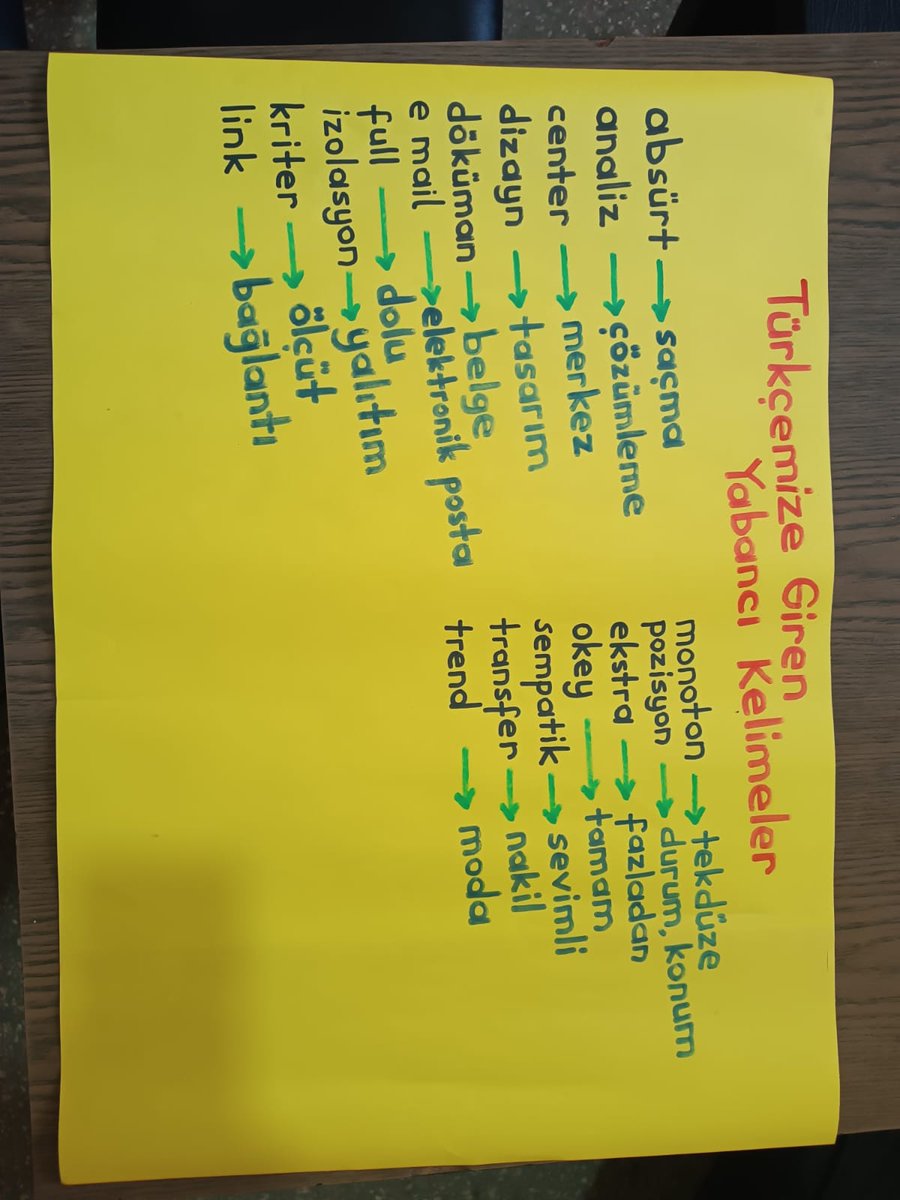 Türkçemize Giren
Yabancı Kelimeler
absürt → saçma
analiz → çözümleme
center → merkez
dizayn → tasarım
döküman → belge
e mail → elektronik posta
full → dolu
izolasyon → yalıtım
kriter → ölçüt
link → bağlantı
monoton → tekdüze
pozisyon → durum, konum
ekstra → fazladan
okey → tamam
sempatik → sevimli
transfer → nakil
trend → moda